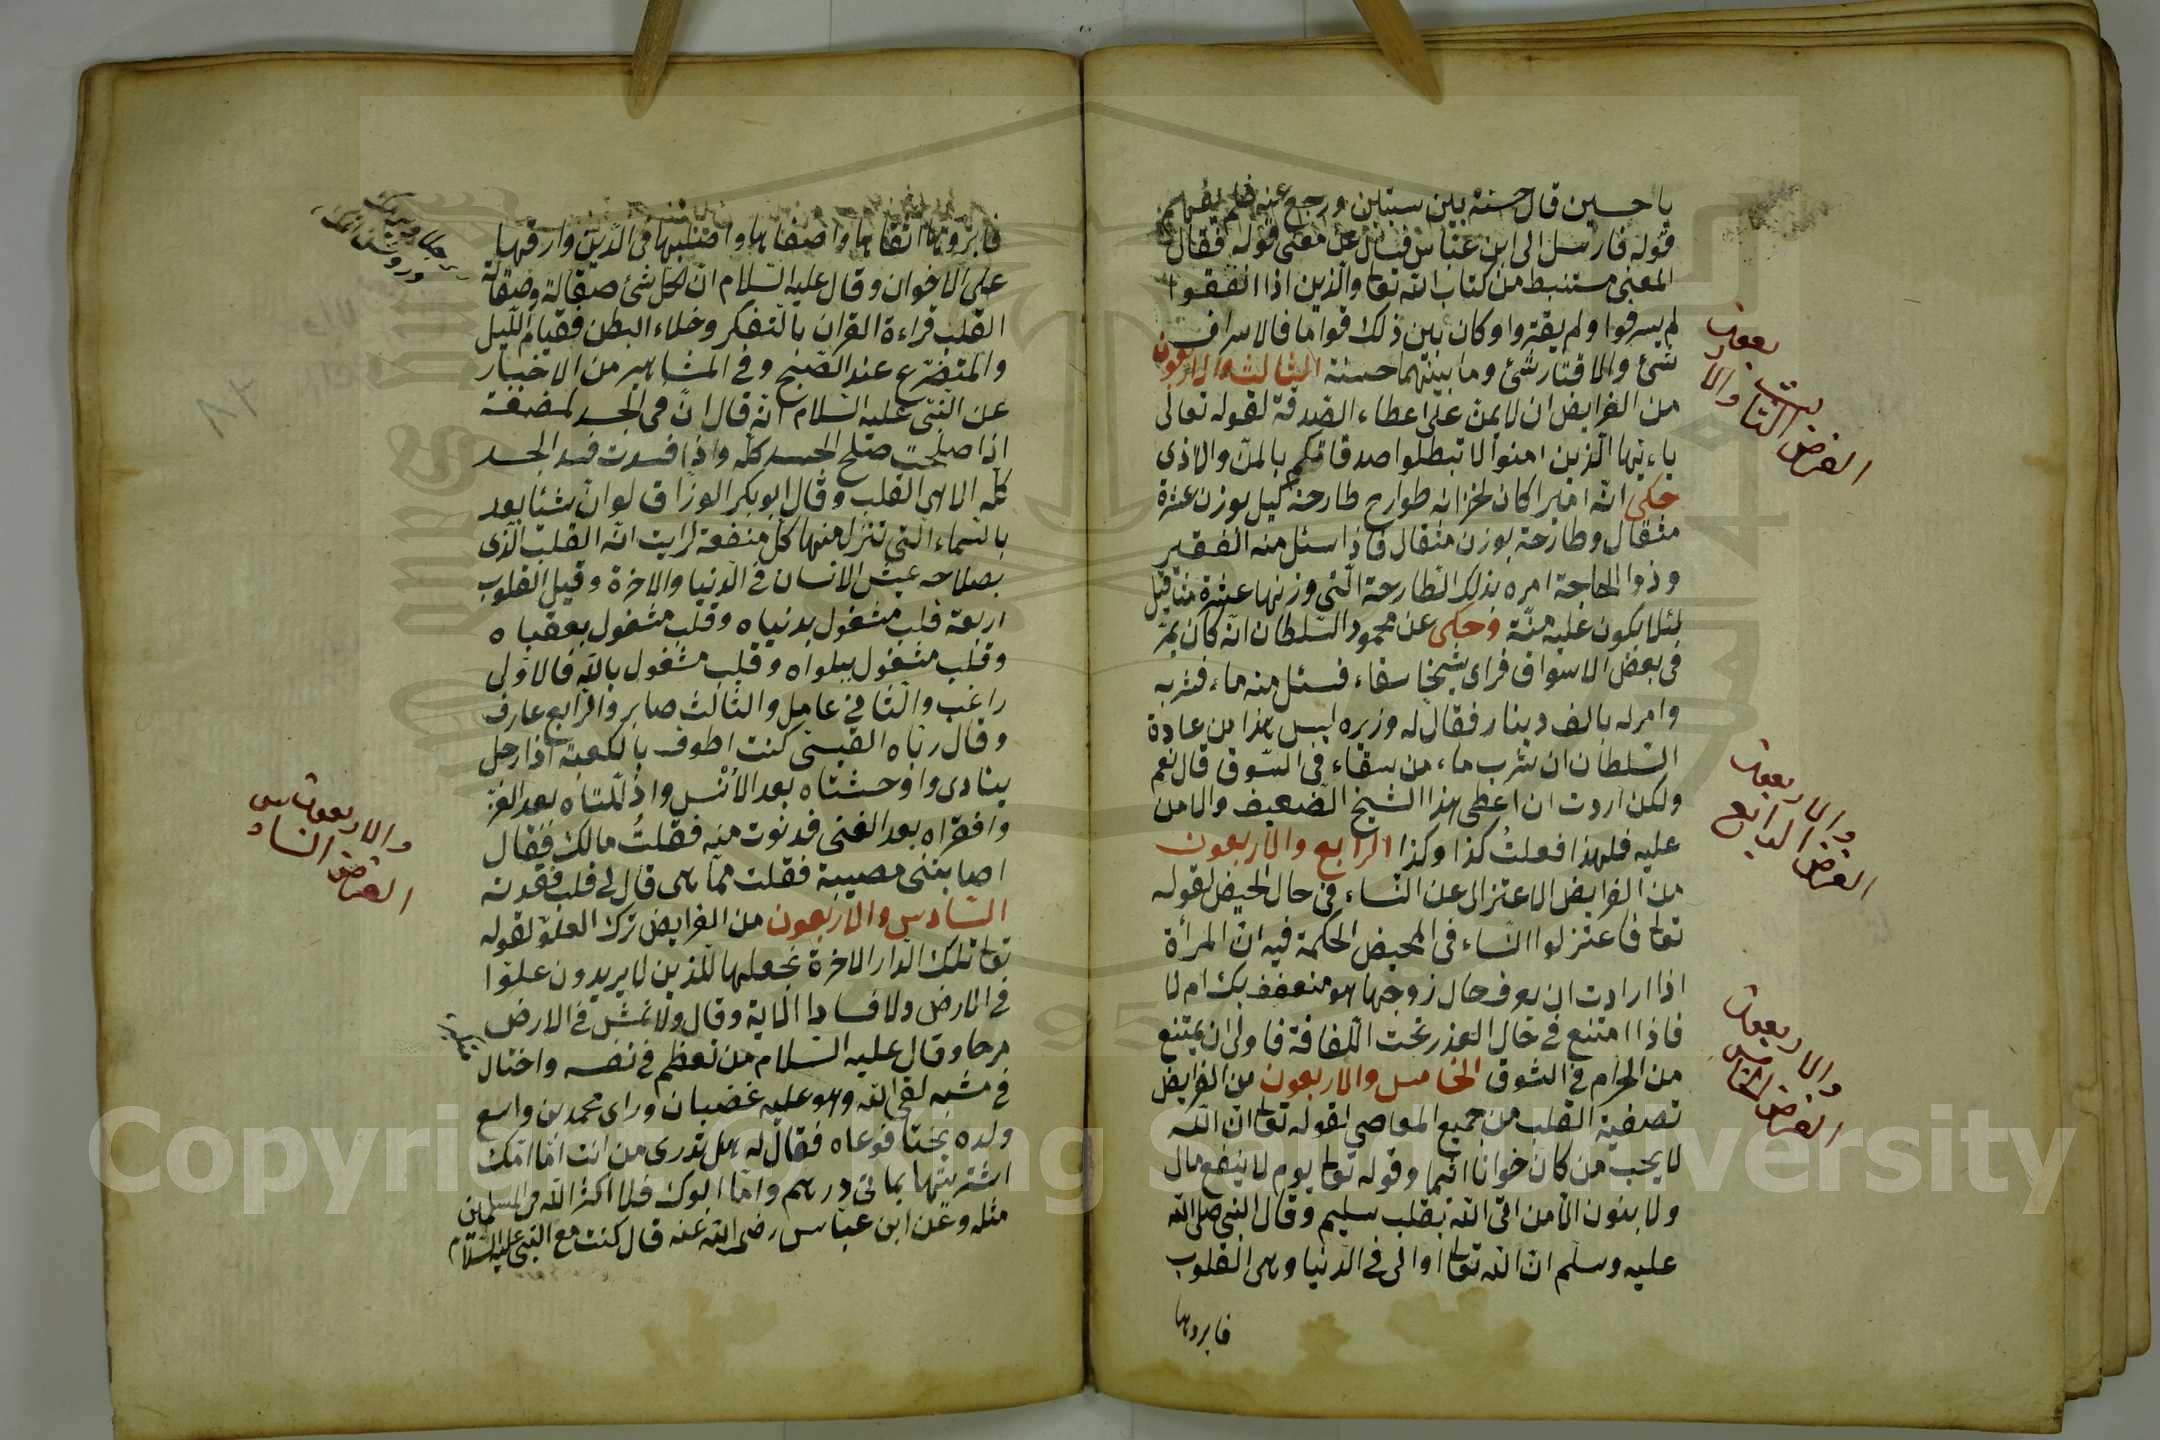 يا حسين قال حسنة بين سيئتين ورجع عنه فلم يفهم
قوله فارسل الى ابن عباس فسال عن معنى قوله فقال
المعنى مستنبط من كتاب الله تعالى والذين اذا انفقوا
لم يسرفوا ولم يقتروا وكان بين ذلك قواما فالاسراف
شئ والاقتار شئ وما بينهما حسنة الثالث والاربعون
من الفرايض ان لا يمن على اعطاء الصدقة لقوله تعالى
ياءيها الذين امنوا لا تبطلوا صدقاتكم بالمن والاذى
حكى انه اميرا كان لخزانه طوارح طارحة كيل بوزن عشرة
مثقال وطارحة بوزن مثقال فاذا سئل منه الفقير
وذوا الحاجة امره بذلك الطارحة التى وزنها عشرة مثاقيل
لئلا يكون عليه منة وحكى عن محمود السلطان انه كان يمر
فى بعض الاسواق فراى شيخا سقاء فسئل منه ماء فشربه
وامر له بالف دينار فقال له وزيره ليس هذا من عادة
السلطان ان شرب ماء من سقاء فى السوق قال نعم
ولكن اردت ان اعطى هذا الشيخ الضعيف ولا امن
عليه فلهذا فعلتُ كذا وكذا الرابع والاربعون
من الفرايض الاعتزال عن النساء فى حال الحيض لقوله
تعالى فاعتزلوا النساء فى المحيض الحكمة فيه ان المرأة
اذا ارادت ان يعرف حال زوجها هو متعفف بك ام لا
فاذا امتنع فى حال العذر تحت اللفافة فاولى ان يمتنع
من الحرام فى السوق الخامس والاربعون من الفرايض
تصفية القلب من جميع المعاصى لقوله تعالى ان الله
لا يحب من كان خوانا اثيما وقوله تعالى يوم لا ينفع مال
ولا بنون الا من اتى الله بقلب سليم وقال النبى صلى الله
عليه وسلم ان الله تعالى اوانى فى الدنيا وهى القلوب
فابرونها
الفرض الثالث والاربعون
الفرض الرابع والاربعون
الفرض الخامس والاربعون
فابرونها اتقاها واصفاها واصلبها فى الدين وارقها
على الاخوان وقال عليه السلام ان لكل شئ صقالة وصقالة
القلب قراءة القران بالتفكر وخلاء البطن فقيام الليل
والتضرع عند الصبح وفى المشاهير من الاخبار
عن النبى عليه السلام انه قال ان فى الجسد لمضغة
اذا صلحت صلح الجسد كله واذا فسدت فسد الجسد
كله الا هى القلب وقال ابو بكر الوراق لو ان شئا يعد
بالسماء التى تنزل منها كل منفعة لرايت انه القلب الذى
بصلاحه عيش الانسان فى الدنيا والاخرة وقيل القلوب
اربعة قلب مشغول بدنياه وقلب مشغول بعقباه
وقلب مشغول ببلواه وقلب مشغول بالله فالاولى
راغب والثانى عامل والثالث صابر والرابع عارف
وقال رباه القيسى كنت اطوف بالكعبة اذا رجل
ينادى واوحشتاه بعد الأنْس واذللتاه بعد العز
وافقراه بعد الغنى فدنوت منه فقلتُ مالك فقال
اصابتنى مصيبة فقلت مما هى قال لى قلب فقدته
السادس والاربعون من الفرايض ترك العلو لقوله
تعالى تلك الدار الاخرة نجعلها للذين لا يريدون علوا
فى الارض ولا فسادا الاية وقال ولا تمش فى الارض
مرحا وقال عليه السلام من تعظم فى نفسه واختال
فى مشيه لقى الله وهو عليه غضبان وراى محمد بن واسع
ولده بختا فدعاه فقال له هل تدرى من انت اما امك
اشتريتها بمائتى درهم واما ابوك فلا اكثر الله فى المسلمين
مثله وعن ابن عباس رضى الله عنه قال كنت مع النبى عليه السلام
الفرض السادس والاربعون
٨٢
Copyright © King Saud University